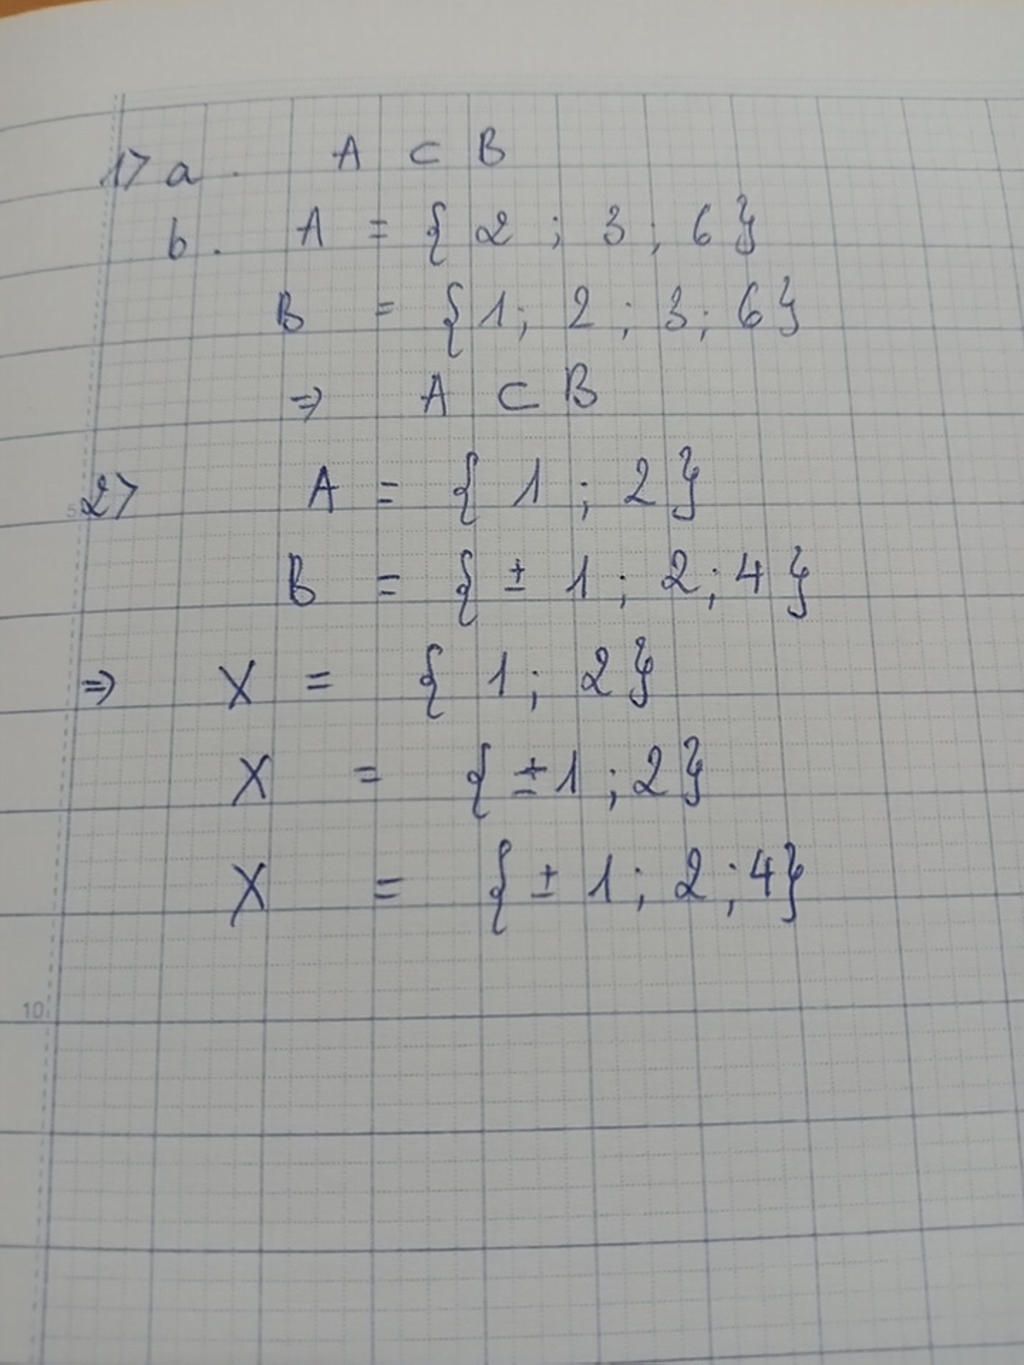 1> a. A ⊂ B
b. A = { 2 ; 3 ; 6 }
B = { 1 ; 2 ; 3 ; 6 }
⇒ A ⊂ B
5
2> A = { 1 ; 2 }
B = { ± 1 ; 2 ; 4 }
⇒ X = { 1 ; 2 }
X = { ± 1 ; 2 }
X = { ± 1 ; 2 ; 4 }
10